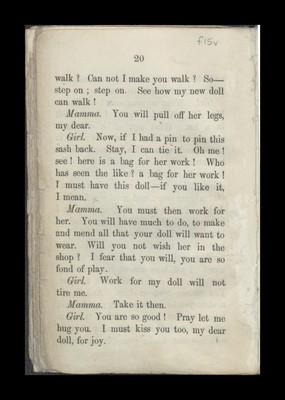 f15v
20
walk ? Can not I make you walk ? So—
step on ; step on. See how my new doll
can walk !
Mamma. You will pull off her legs,
my dear.
Girl. Now, if I had a pin to pin this
sash back. Stay, I can tie it. Oh me !
see ! here is a bag for her work ! Who
has seen the like ? a bag for her work !
I must have this doll—if you like it,
I mean.
Mamma. You must then work for
her. You will have much to do, to make
and mend all that your doll will want to
wear. Will you not wish her in the
shop ? I fear that you will, you are so
fond of play.
Girl. Work for my doll will not
tire me.
Mamma. Take it then.
Girl. You are so good ! Pray let me
hug you. I must kiss you too, my dear
doll, for joy.